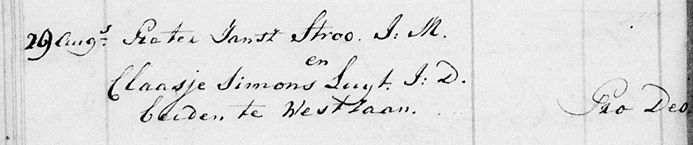 29 Augs Pieter Janse Stroo. J: M.
en
Claasje Simons Luyt. J: D.
beiden te Westzaan. Pro Deo.